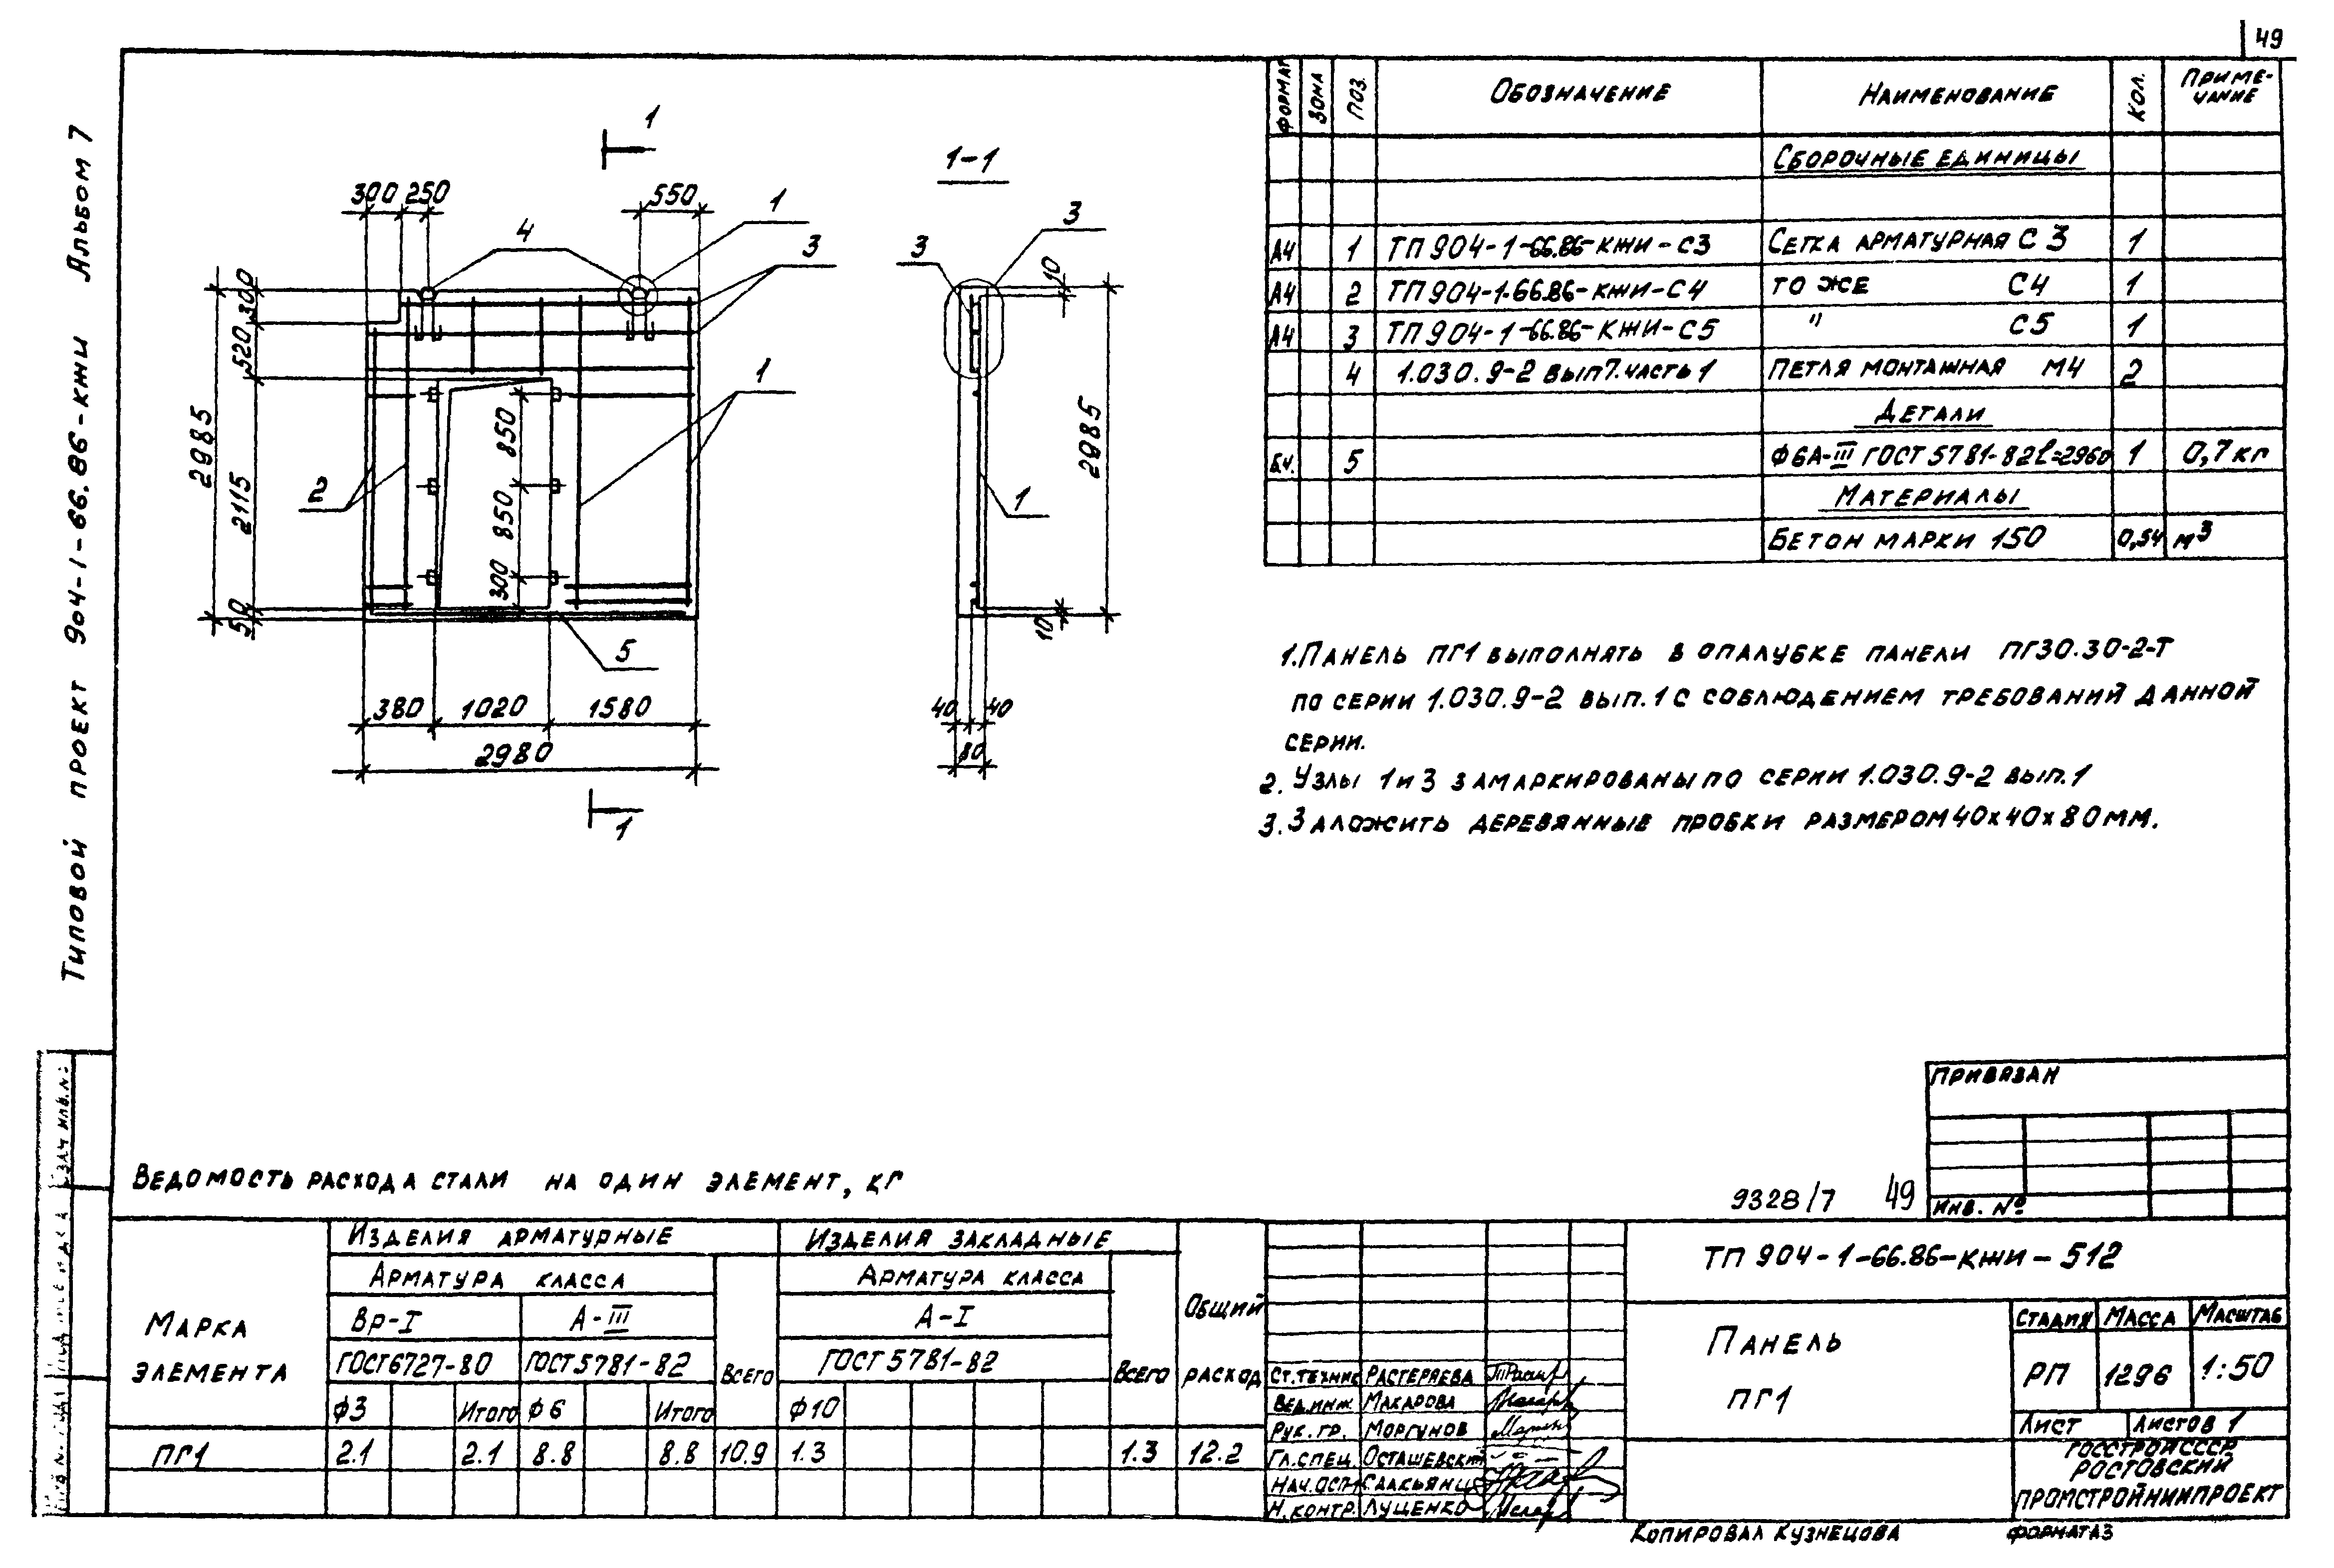 49
Типовой проект 904-1-66.86-КЖИ Альбом 7
1
1-1
300 250
550
1
4
3
3
3
300
520
2985
2115
50
850
850
300
1
2
5
380 1020 1580
2980
1
10
2985
1
10
40 40
80
Формат Зона Поз. Обозначение Наименование Кол. Приме-
чание
Сборочные единицы
А4 1 ТП 904-1-66.86-КЖИ-С3 Сетка арматурная С3 1
А4 2 ТП 904-1-66.86-КЖИ-С4 То же С4 1
А4 3 ТП 904-1-66.86-КЖИ-С5 " С5 1
4 1.030.9-2 вып7.часть 1 Петля монтажная М4 2
Детали
Б.ч. 5 Ф6А-III ГОСТ 5781-82 ℓ=2960 1 0,7кг
Материалы
Бетон марки 150 0,54 м³
1. Панель ПГ1 выполнять в опалубке панели ПГ30.30-2-Т
по серии 1.030.9-2 вып.1 с соблюдением требований данной
серии.
2. Узлы 1 и 3 замаркированы по серии 1.030.9-2 вып.1
3. Заложить деревянные пробки размером 40х40х80мм.
Привязан
Инв. №
9328/7 49
Взам инв.№
Ведомость расхода стали на один элемент, кг
Марка
элемента
Изделия арматурные Изделия закладные
Арматура класса Арматура класса
Вр-I А-III Всего А-I Всего Общий
расход
ГОСТ 6727-80 ГОСТ 5781-82 ГОСТ 5781-82
ф3 Итого ф6 Итого ф10
ПГ1 2.1 2.1 8.8 8.8 10.9 1.3 1.3 12.2
Ст.техник Растеряева
Вед.инж. Макарова
Рук. гр. Моргунов
Гл.спец. Осташевский
Нач.ОСП-1 Саакьянц
Н.контр. Луценко
ТП 904-1-66.86-КЖИ-512
Панель
ПГ1
Стадия Масса Масштаб
РП 1296 1:50
Лист Листов 1
Госстрой СССР
Ростовский
Промстройниипроект
Копировал Кузнецова Формат А3